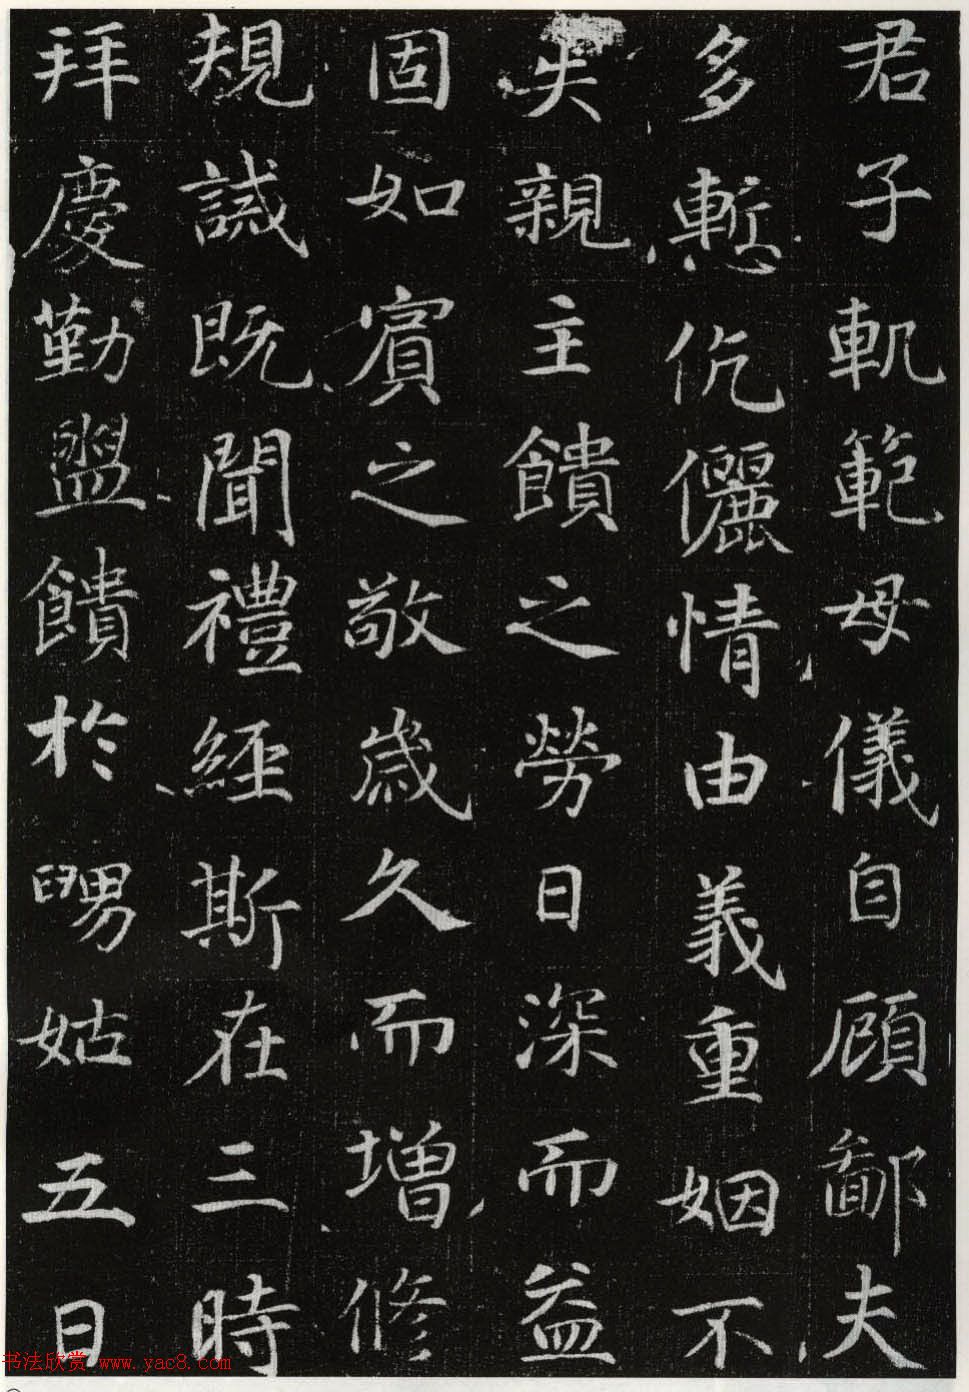 君子軏範母儀自顧鄙夫
多慙伉儷情由義重姻不
失親主饋之勞日深而益
固如賓之敬歲久而增修
規誡既聞禮經斯在三時
拜慶勤盥饋於舅姑五日
书法欣赏 www.yac8.com